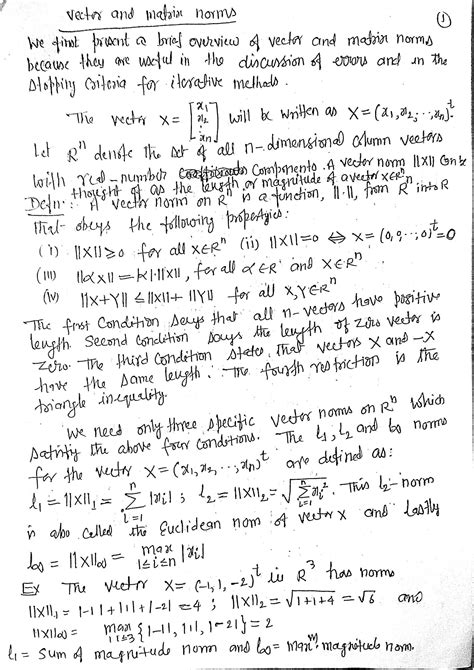 Vector and matrix norms
①
We first present a brief overview of vector and matrix norms
because they are useful in the discussion of errors and in the
stopping criteria for iterative methods.
The vector X = [x₁ x₂ ⋮ xₙ] will be written as X = (x₁, x₂, ⋯, xₙ)ᵗ.
Let Rⁿ denote the set of all n-dimensional column vectors
with real-number components. A vector norm ||X|| can be
thought of as the length or magnitude of a vector X∈Rⁿ.
Defn: A vector norm on Rⁿ is a function, ||·||, from Rⁿ into R
that obeys the following properties:
(i) ||X|| ≥ 0 for all X∈Rⁿ (ii) ||X|| = 0 ⇔ X = (0, 0, ⋯, 0)ᵗ = 0
(iii) ||αX|| = |α|·||X||, for all α∈R and X∈Rⁿ.
(iv) ||X+Y|| ≤ ||X|| + ||Y|| for all X,Y∈Rⁿ
The first condition says that all n-vectors have positive
length. Second condition says the length of zero vector is
zero. The third condition states that vectors X and -X
have the same length. The fourth restriction is the
triangle inequality.
We need only three specific vector norms on Rⁿ which
satisfy the above four conditions. The l₁, l₂ and l∞ norms
for the vector X = (x₁, x₂, ⋯, xₙ)ᵗ are defined as:
l₁ = ||X||₁ = Σᵢ₌₁ⁿ |xᵢ| ; l₂ = ||X||₂ = √(Σᵢ₌₁ⁿ xᵢ²). This l₂-norm
is also called the Euclidean norm of vector X and lastly
l∞ = ||X||∞ = max 1≤i≤n |xᵢ|
Ex The vector X = (-1, 1, -2)ᵗ in R³ has norms
||X||₁ = |-1| + |1| + |-2| = 4 ; ||X||₂ = √(1+1+4) = √6 and
||X||∞ = max 1≤i≤3 {|-1|, |1|, |-2|} = 2
l₁ = sum of magnitude norm and l∞ = maxᵐ magnitude norm.